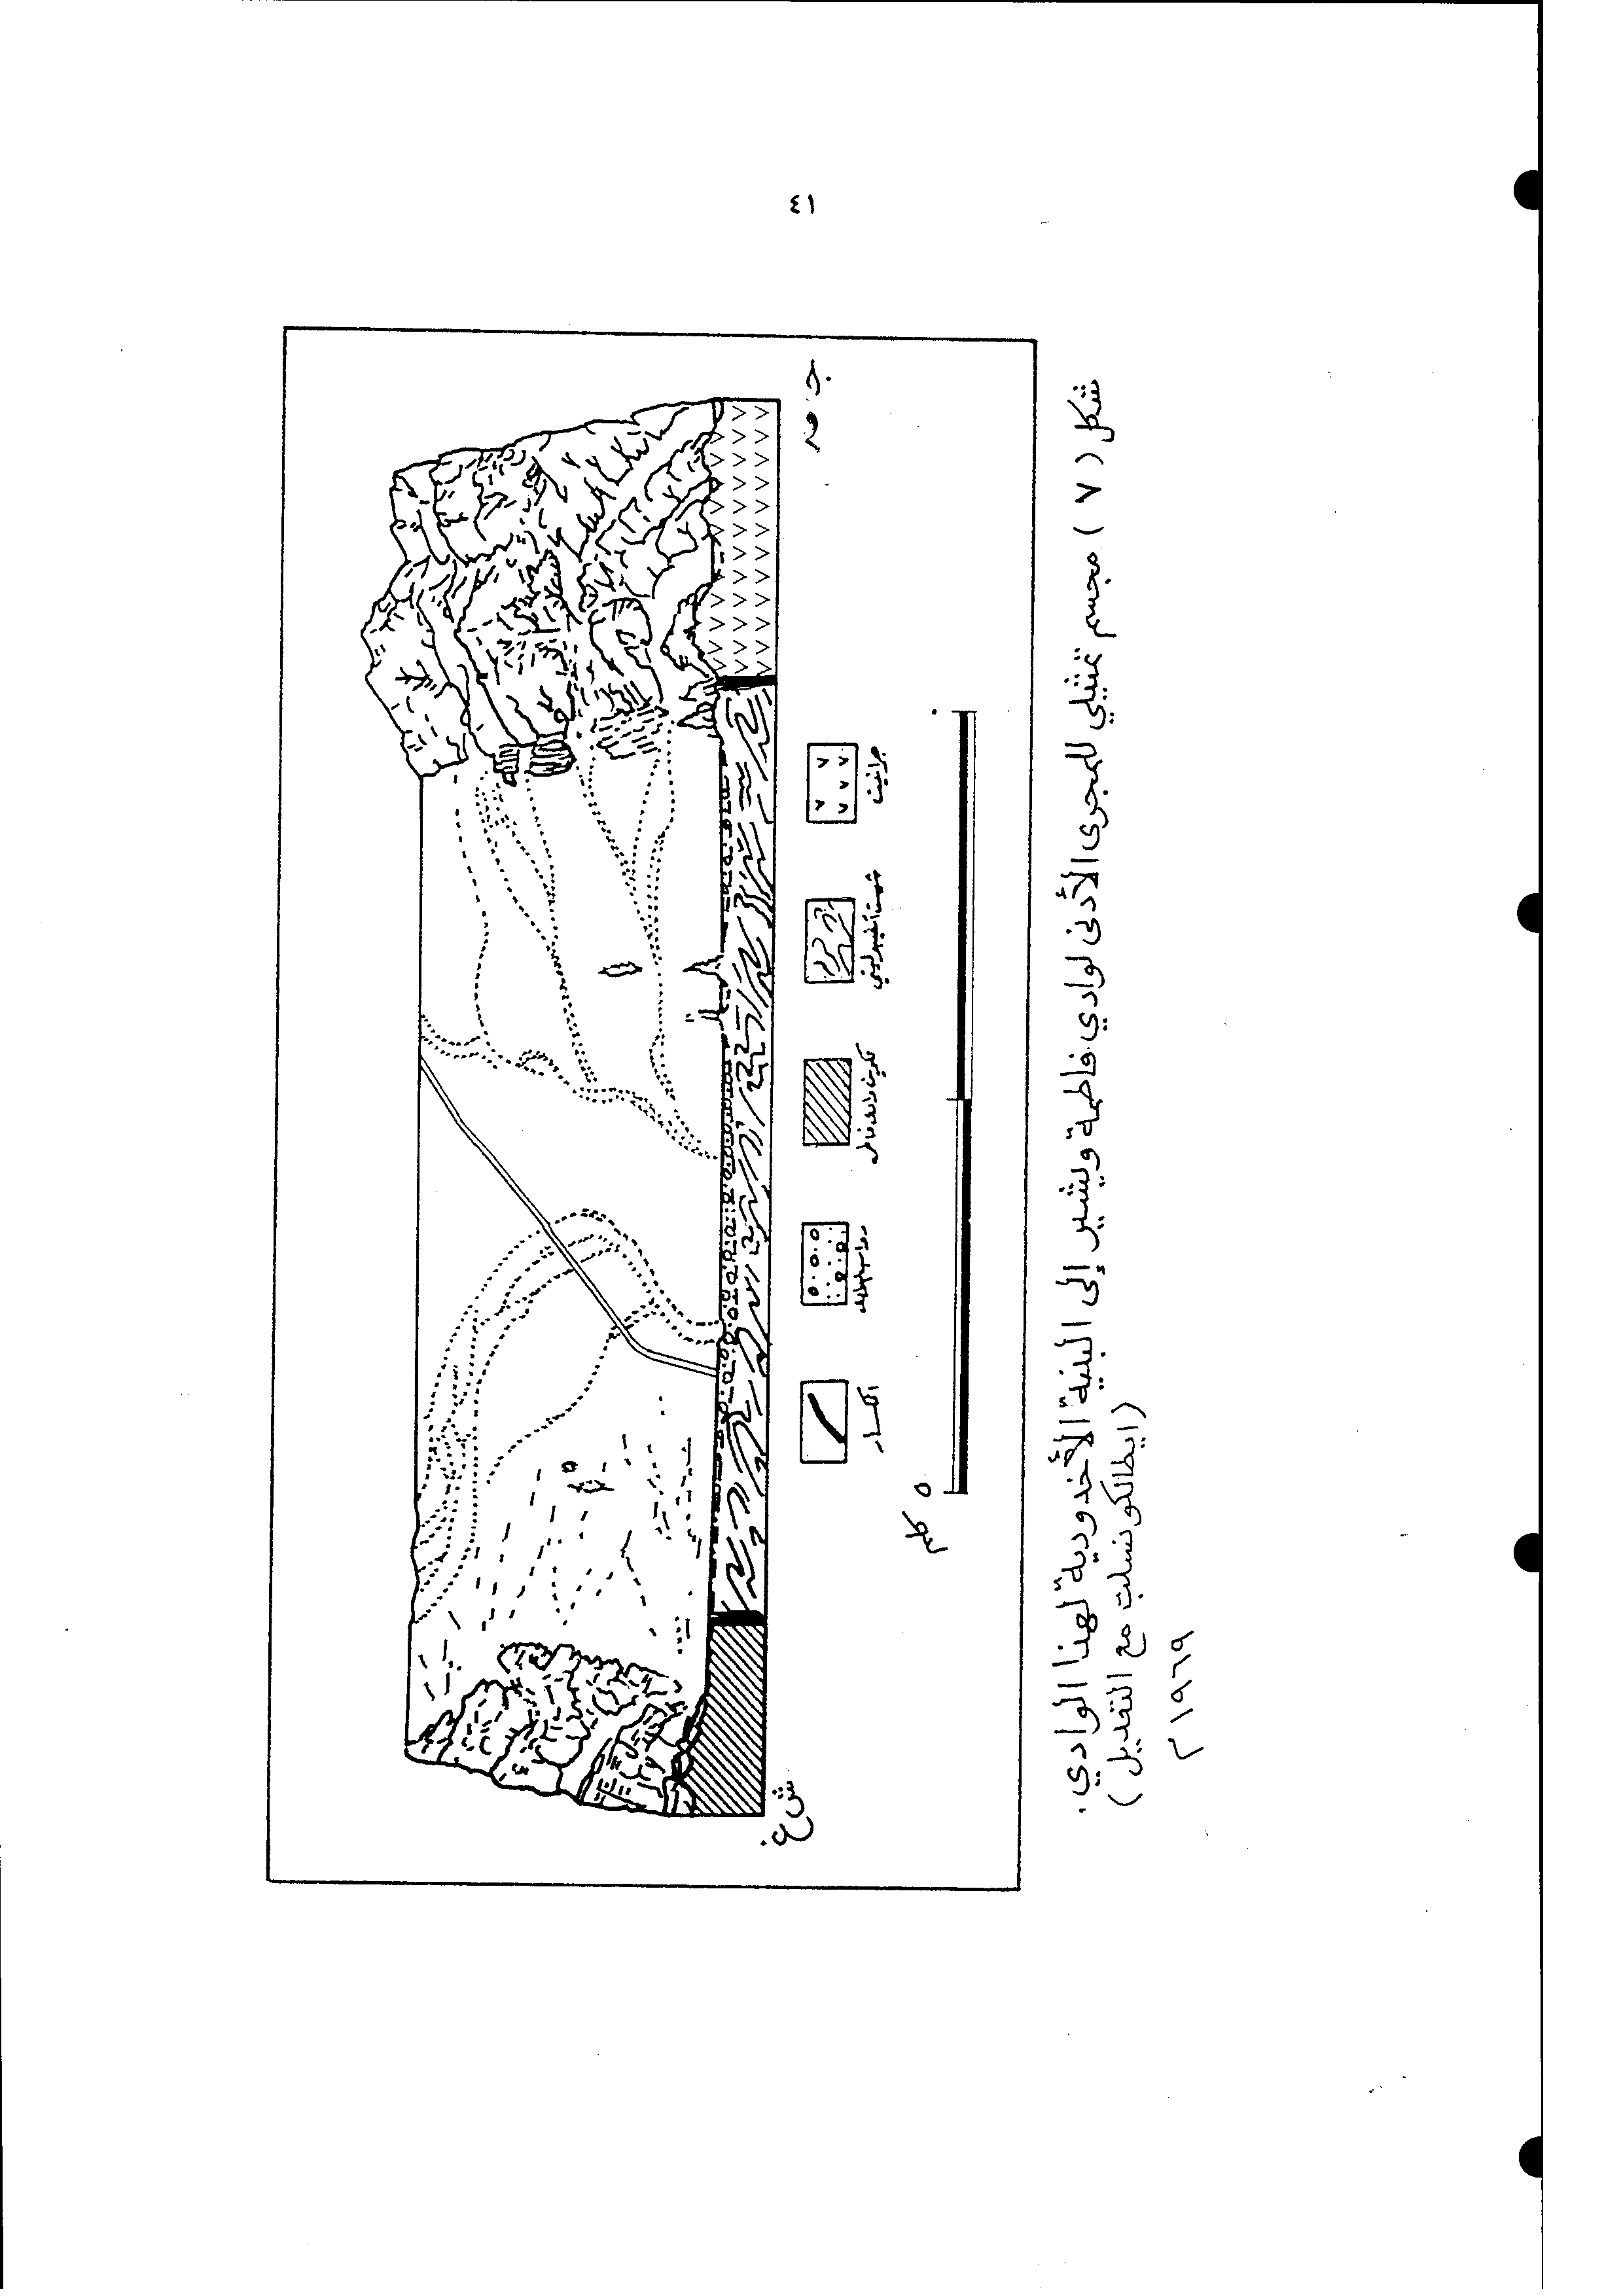 ٤١
ج ق
جرانيت
شيست أمفيبوليتي
تكوينات وادي فاطمه
رواسب الوادي
انكسار
ش غ
٠
٥ كلم
شكل ( ٧ ) مجسم تمثيلي للمجرى الأدنى لوادي فاطمة ويشير إلى البنية الأخدودية لهذا الوادي .
( ايطالكونسلت مع التعديل )
١٩٦٩ م